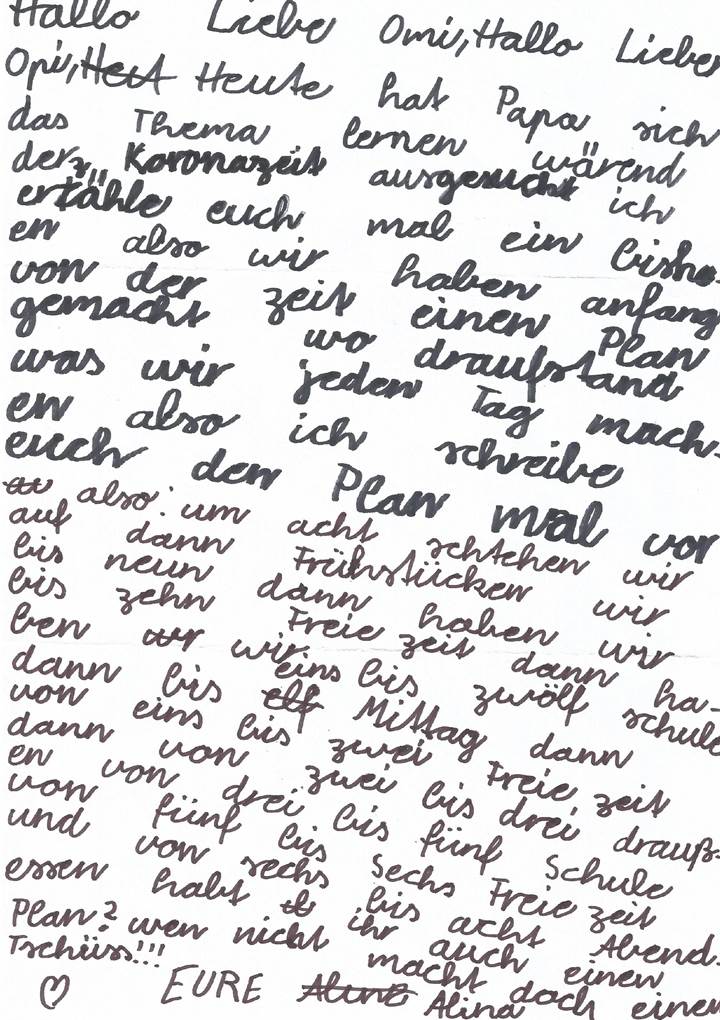 Hallo Liebe Omi, Hallo Lieber
Opi, Heut Heute hat Papa sich
das Thema lernen wärend
der Koronazeit ausgesucht ich
erzähle euch mal ein bishe-
en also wir haben anfang
von der zeit einen Plan
gemacht wo draufstand
was wir jeden Tag mach-
en also ich schreibe
euch den Plan mal vor
also: um acht schtehen wir
auf dann Frühstücken wir
bis neun dann haben wir
bis zehn Freie zeit dann ha-
ben wir bis zwölf schule
dann bis elf eins Mittag dann
von eins bis zwei Freie zeit
dann von zwei bis drei drauß-
en von drei bis fünf Schule
von fünf bis Sechs Freie zeit
und von sechs bis acht Abend-
essen habt ihr auch einen
Plan? wen nicht macht doch einen
Tschüss!!!
♡ EURE Alina Alina